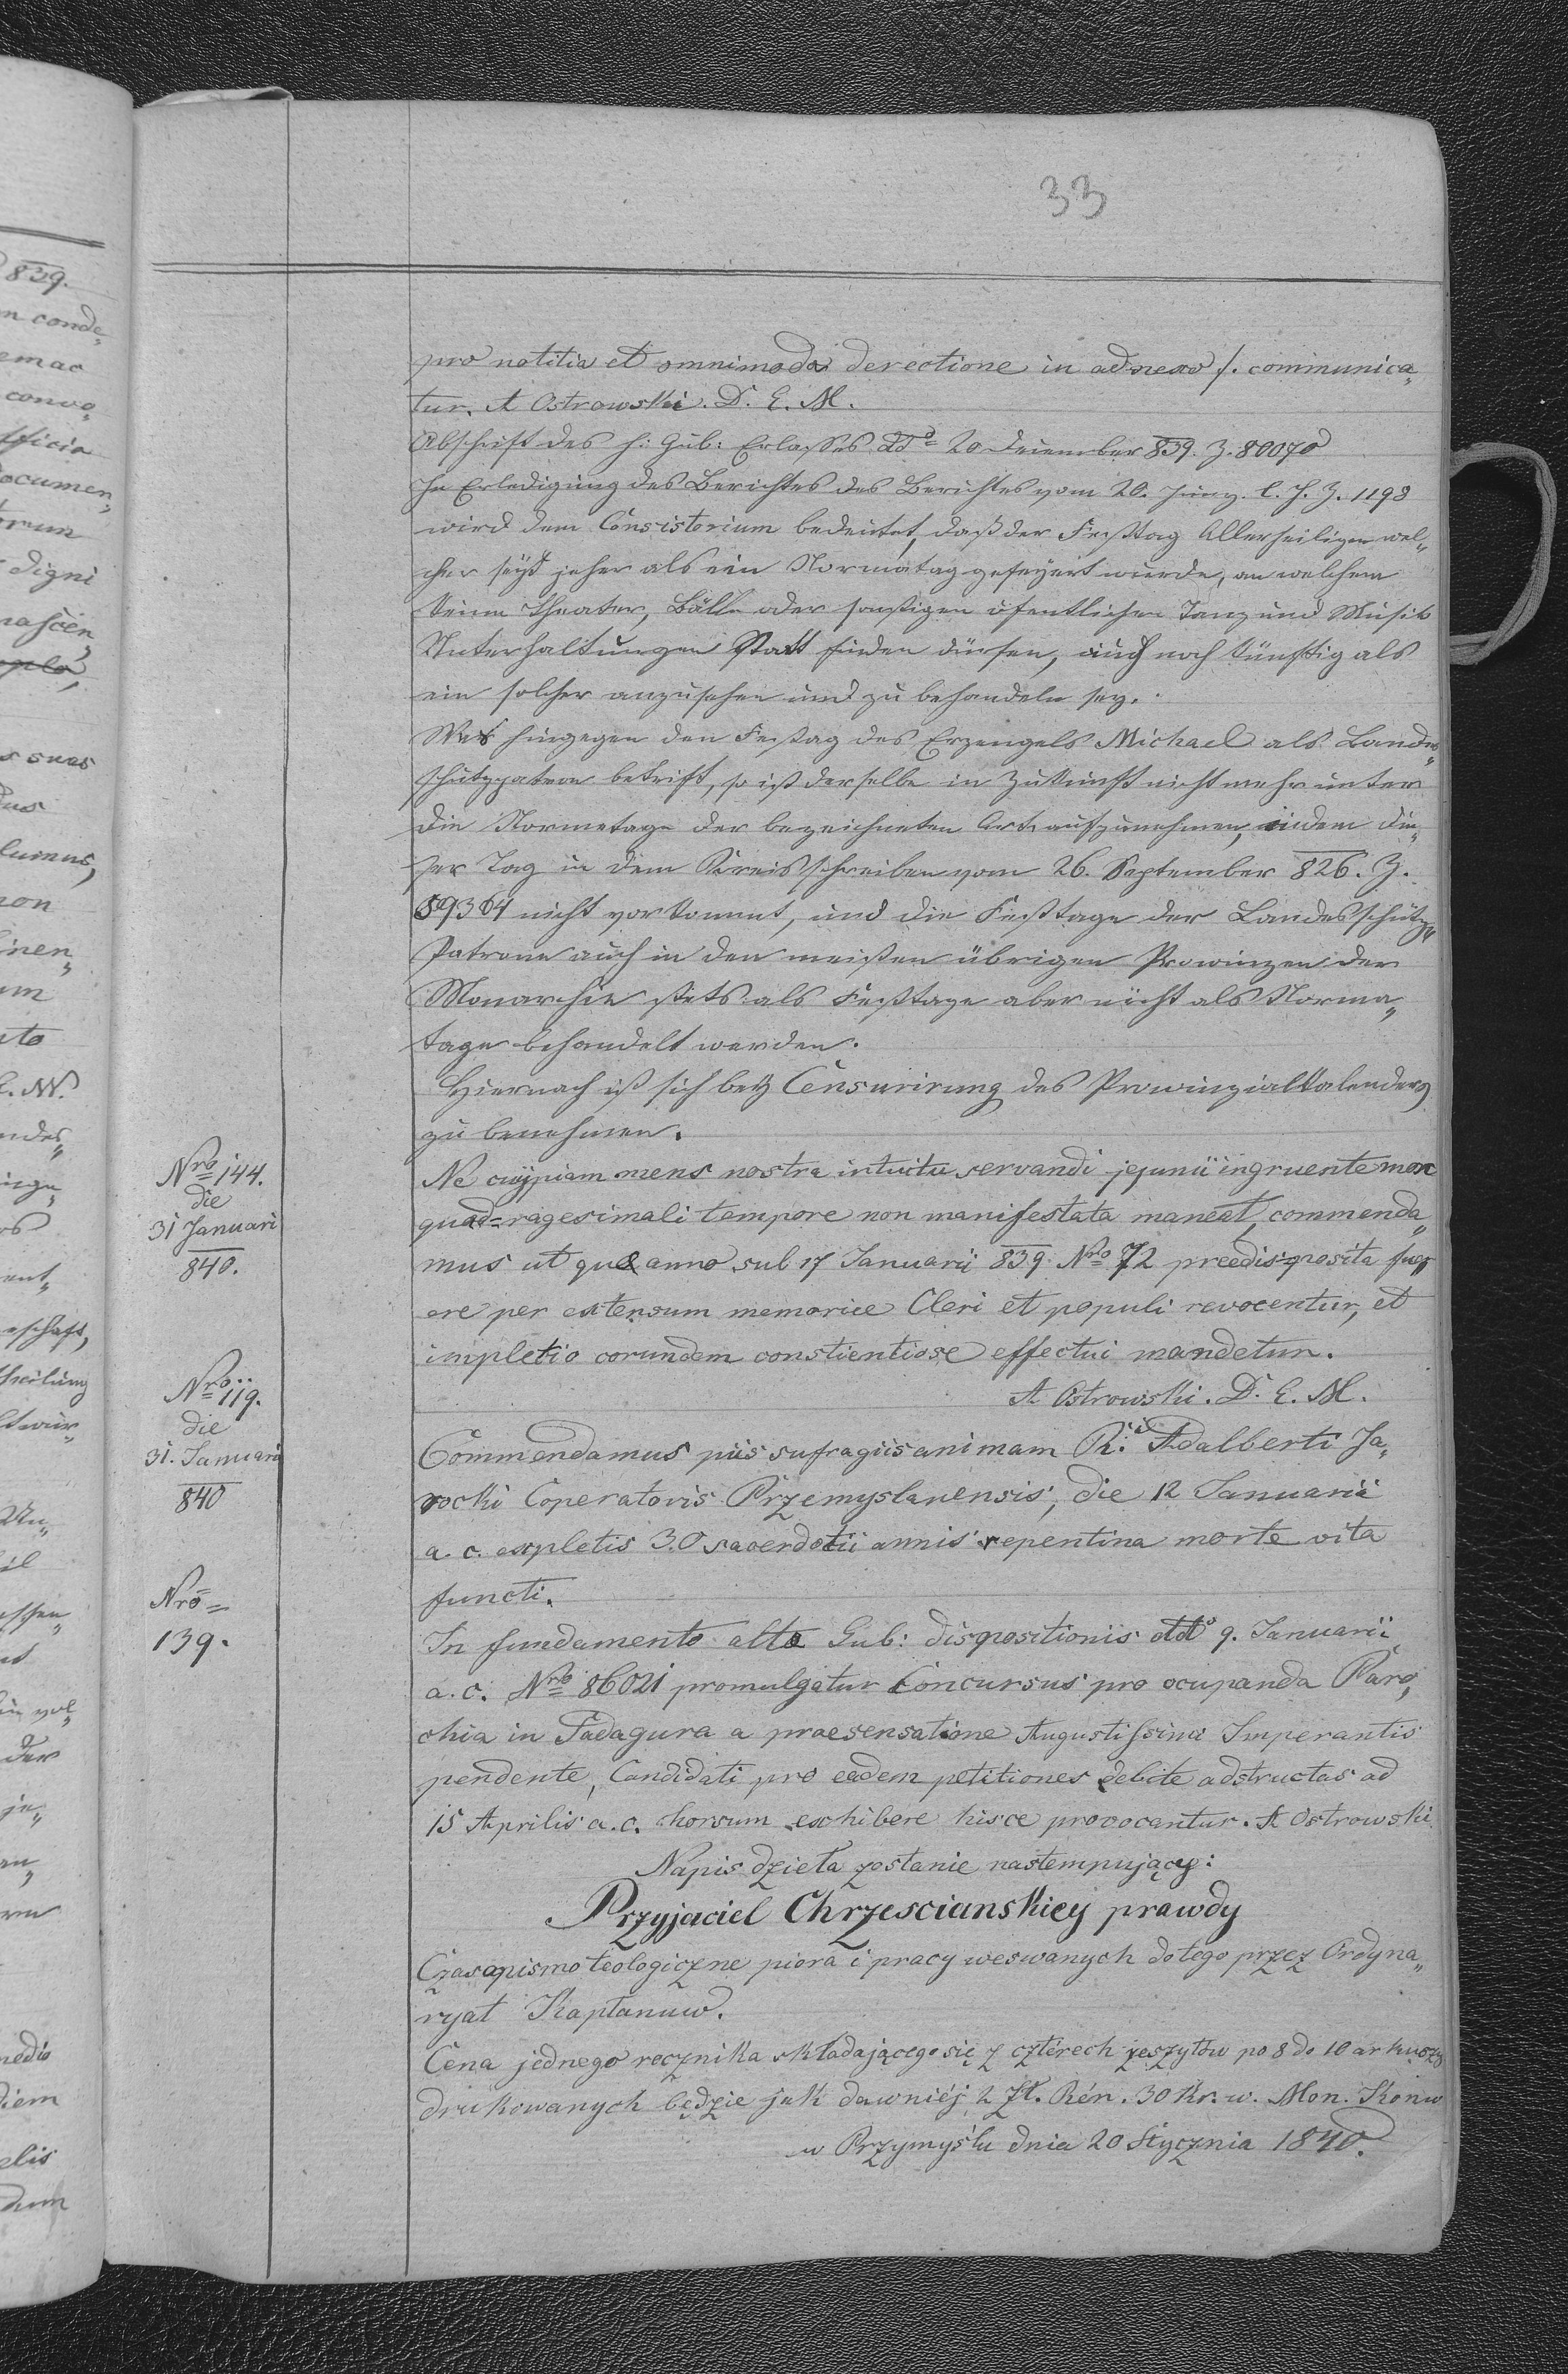 33
pro notitia et omnimoda derectione in adnexo /. communica„
tur. A Ostrowski. D. E. M.
Abschrift des h: Gub: Erlasses ddo 20 December 839. Z. 80070
In Erledigung des Berichtes des Berichtes vom 20. Juny. l. J. Z. 1198
wird dem Consistorium bedeutet, daß der Festtag Allerheiligen wel„
cher seyt jeher als ein Normatag gefeyert wurde, an welchem
keine Theater, Bälle oder sonstigen öfentlichen Tanz und Musik
Unterhaltungen Statt finden dürfen, auch noch künftig als
ein solcher anzusehen und zu behandeln sey.
Was hingegen den Festag des Erzengels Michael als Landes„
schutzpatron betrift, so ist derselbe in Zukunft nicht mehr unter
die Normatage der bezeichneten Art aufzunehmen, indem die„
ser Tag in dem Kreisschreiben vom 26. September 826. Z.
59364 nicht vorkommt, und die Festtage der Landesschutz„
Patrone auch in den meisten übrigen Prowinzen der
Monarchie stets als Festtage aber nicht als Norma„
tage behandelt werden.
Hiernach ist sich bey Censurirung des Prowinzialkalenders
zu benehmen.
Nro 144.
die
31 Januari
840.
Ne cuijpiam mens nostra intuitu servandi jejunii ingruente mox
quad=ragesimali tempore non manifestata maneat, commenda„
mus ut quae anno sub 17 Januarii 839 Nro 72 preedis=posita fue„
ere per extensum memoriae Cleri et populi revocentur, et
impletio corundem constientiose effectui mandetur.
A Ostrowski. D. E. M.
Nro 119.
die
31. Januari
840
Commendamus piis sufragiis animam R. Adalberti Ja„
rocki Coperatoris Przemyslanensis, die 12 Januarii
a. c. expletis 30 sacerdotii annis repentina morte vita
functi.
Nro=
139.
In fundamento alta Gub: dispositioniis ddo 9. Januarii
a. c. Nro 86021 promulgatur Concursus pro ocupanda Paro„
chia in Padagura a praesensatione Augustissimi Imperantis
pendente, Candidati pro eadem petitiones debite adstructas ad
15 Aprilis a. c. horsum exhibere hisce provocantur. A Ostrowski
Napis dzieła zostanie nastempujący:
Przyjaciel Chrzescianskiey prawdy
Czasopismo teologiczne piora i pracy weswanych do tego przez Ordyna„
ryat Kapłanuw.
Cena jednego rocznika składającego się z cztérech zeszytów po 8 do 10 arkuszy
drukowanych będzie jak dawniéj 2 Zł. Rén. 30 Kr. w. Mon. Konw
w Przymyślu dnia 20 Stycznia 1840.